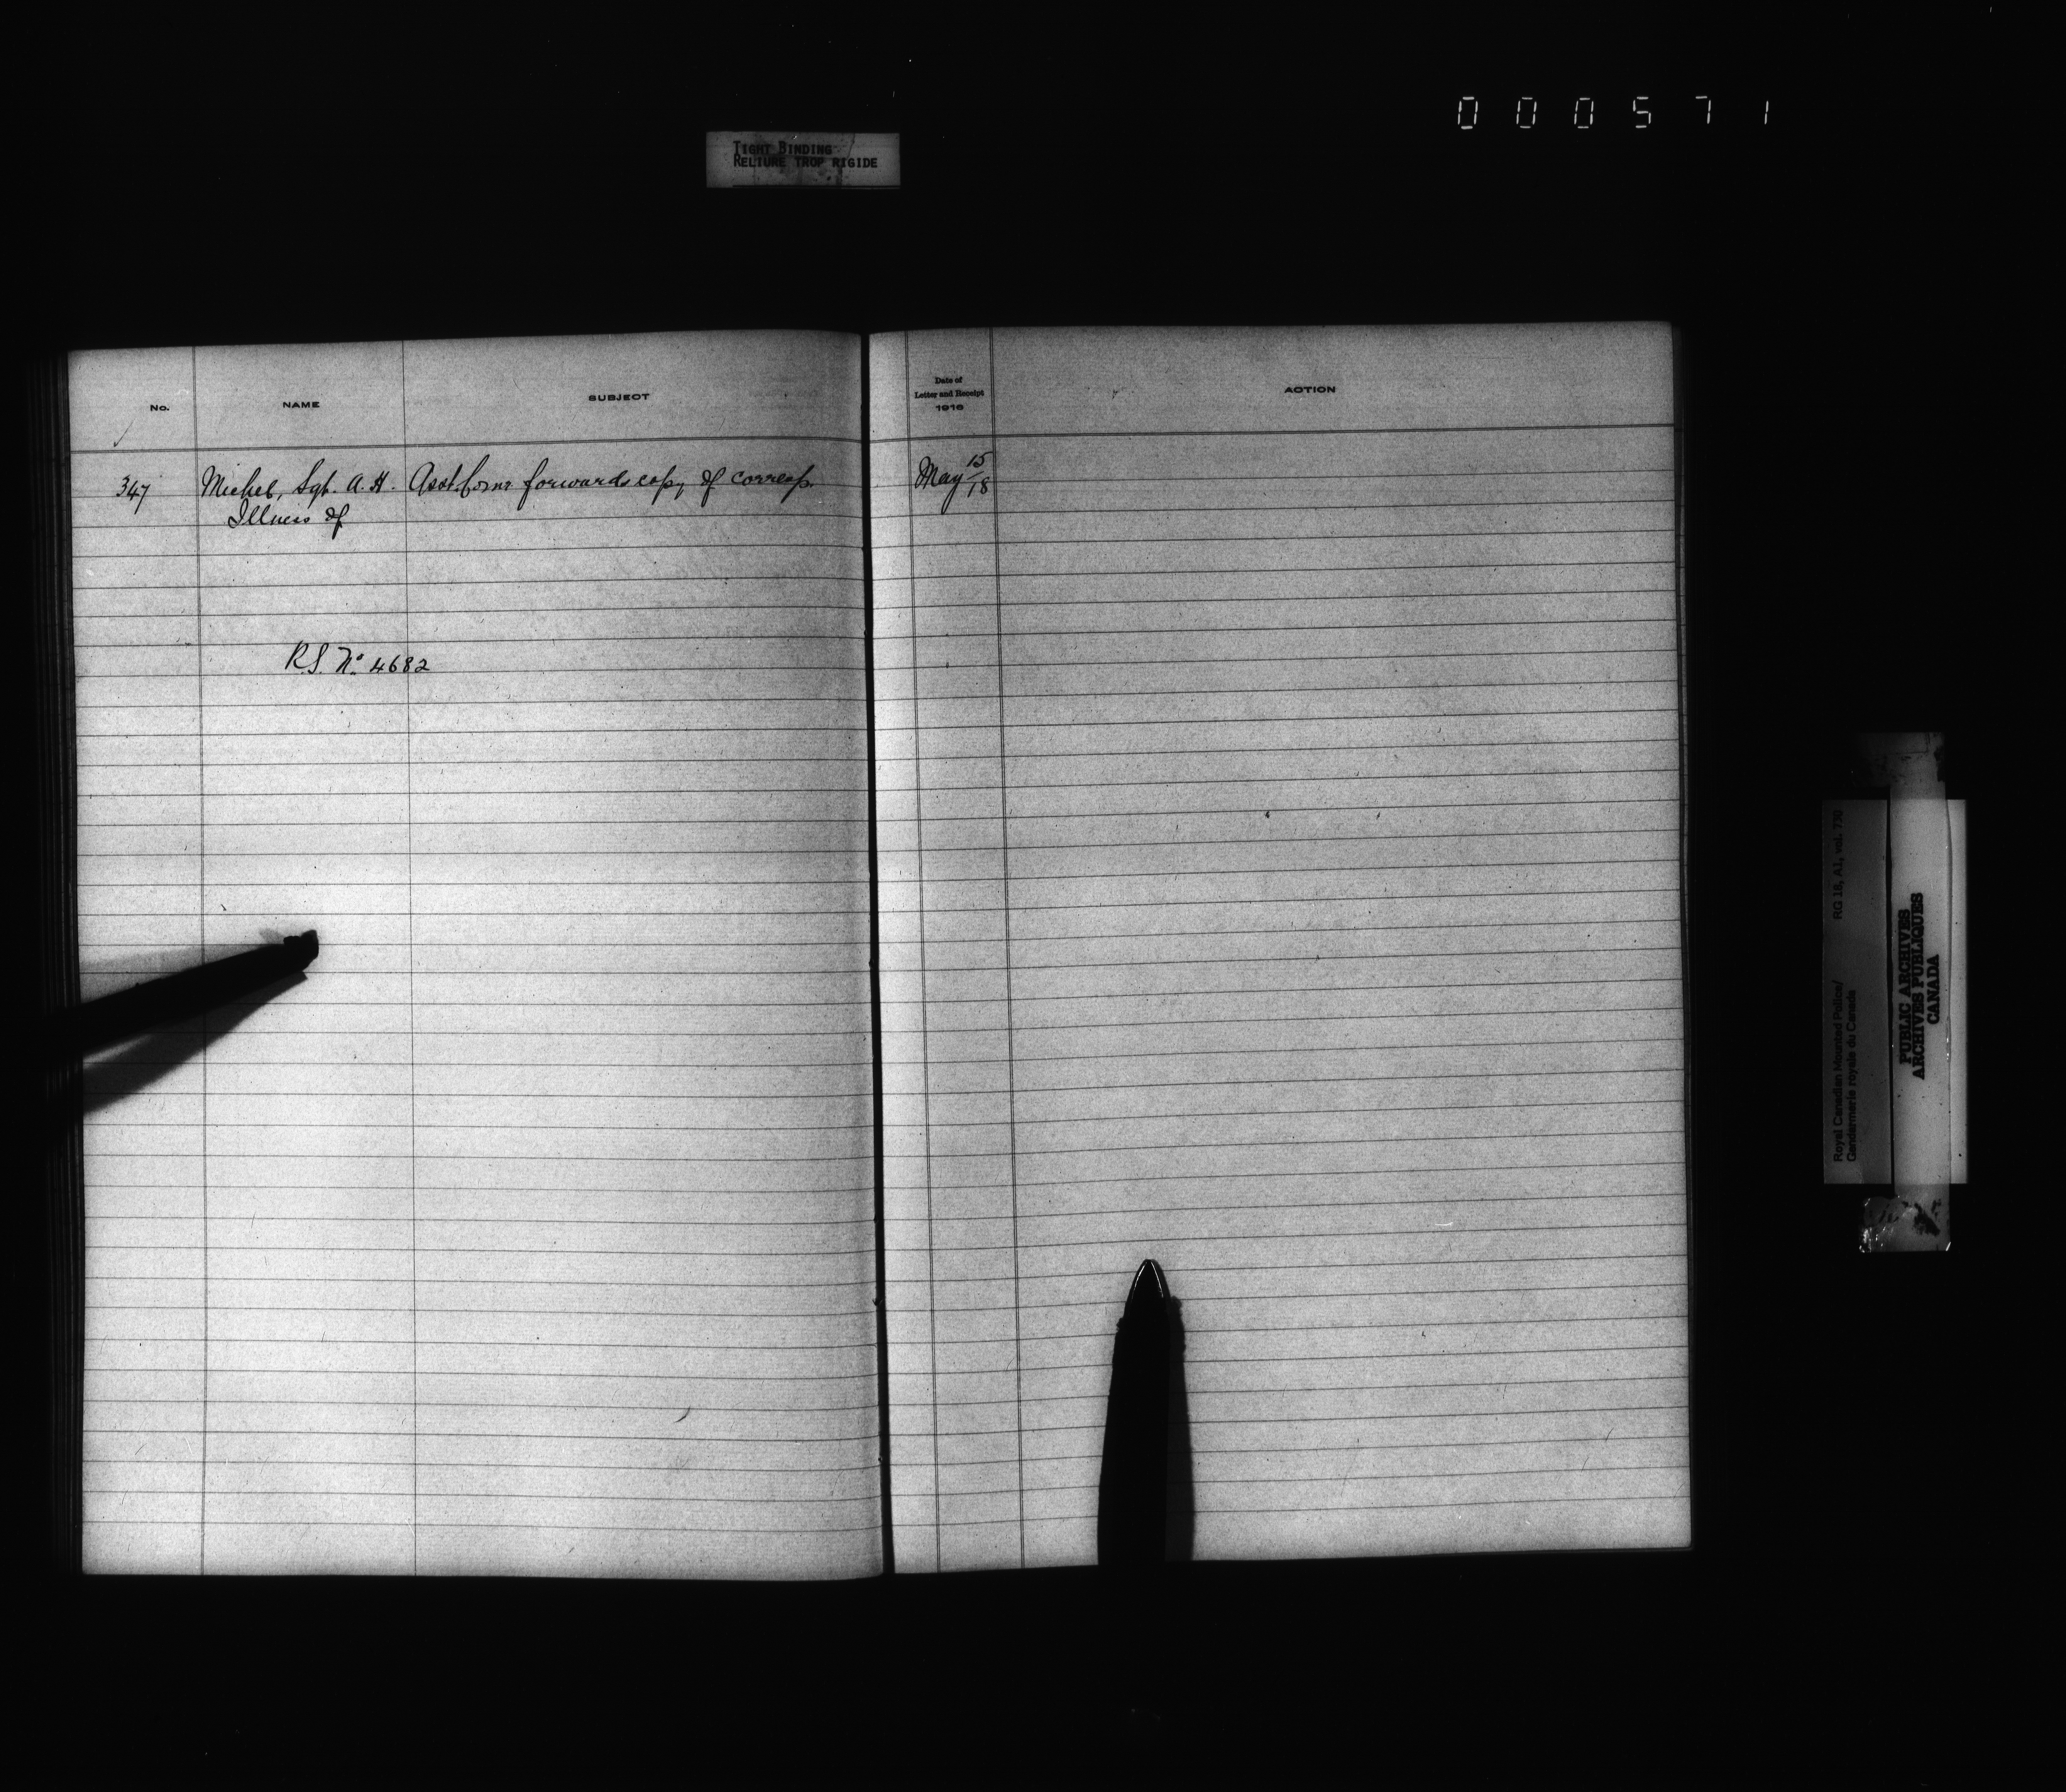 000571
TIGHT BINDING
RELIURE TROP RIGIDE
No. NAME SUBJECT
Date of
Letter and Receipt
1916
ACTION
347 Michel, Sgt. A. H. Asst. Comr. forwards copy of corresp. May 15/18
Illness of
R.S. No. 4682
Royal Canadian Mounted Police/ RG 18, A1, vol. 738
Gendarmerie royale du Canada
PUBLIC ARCHIVES
ARCHIVES PUBLIQUES
CANADA